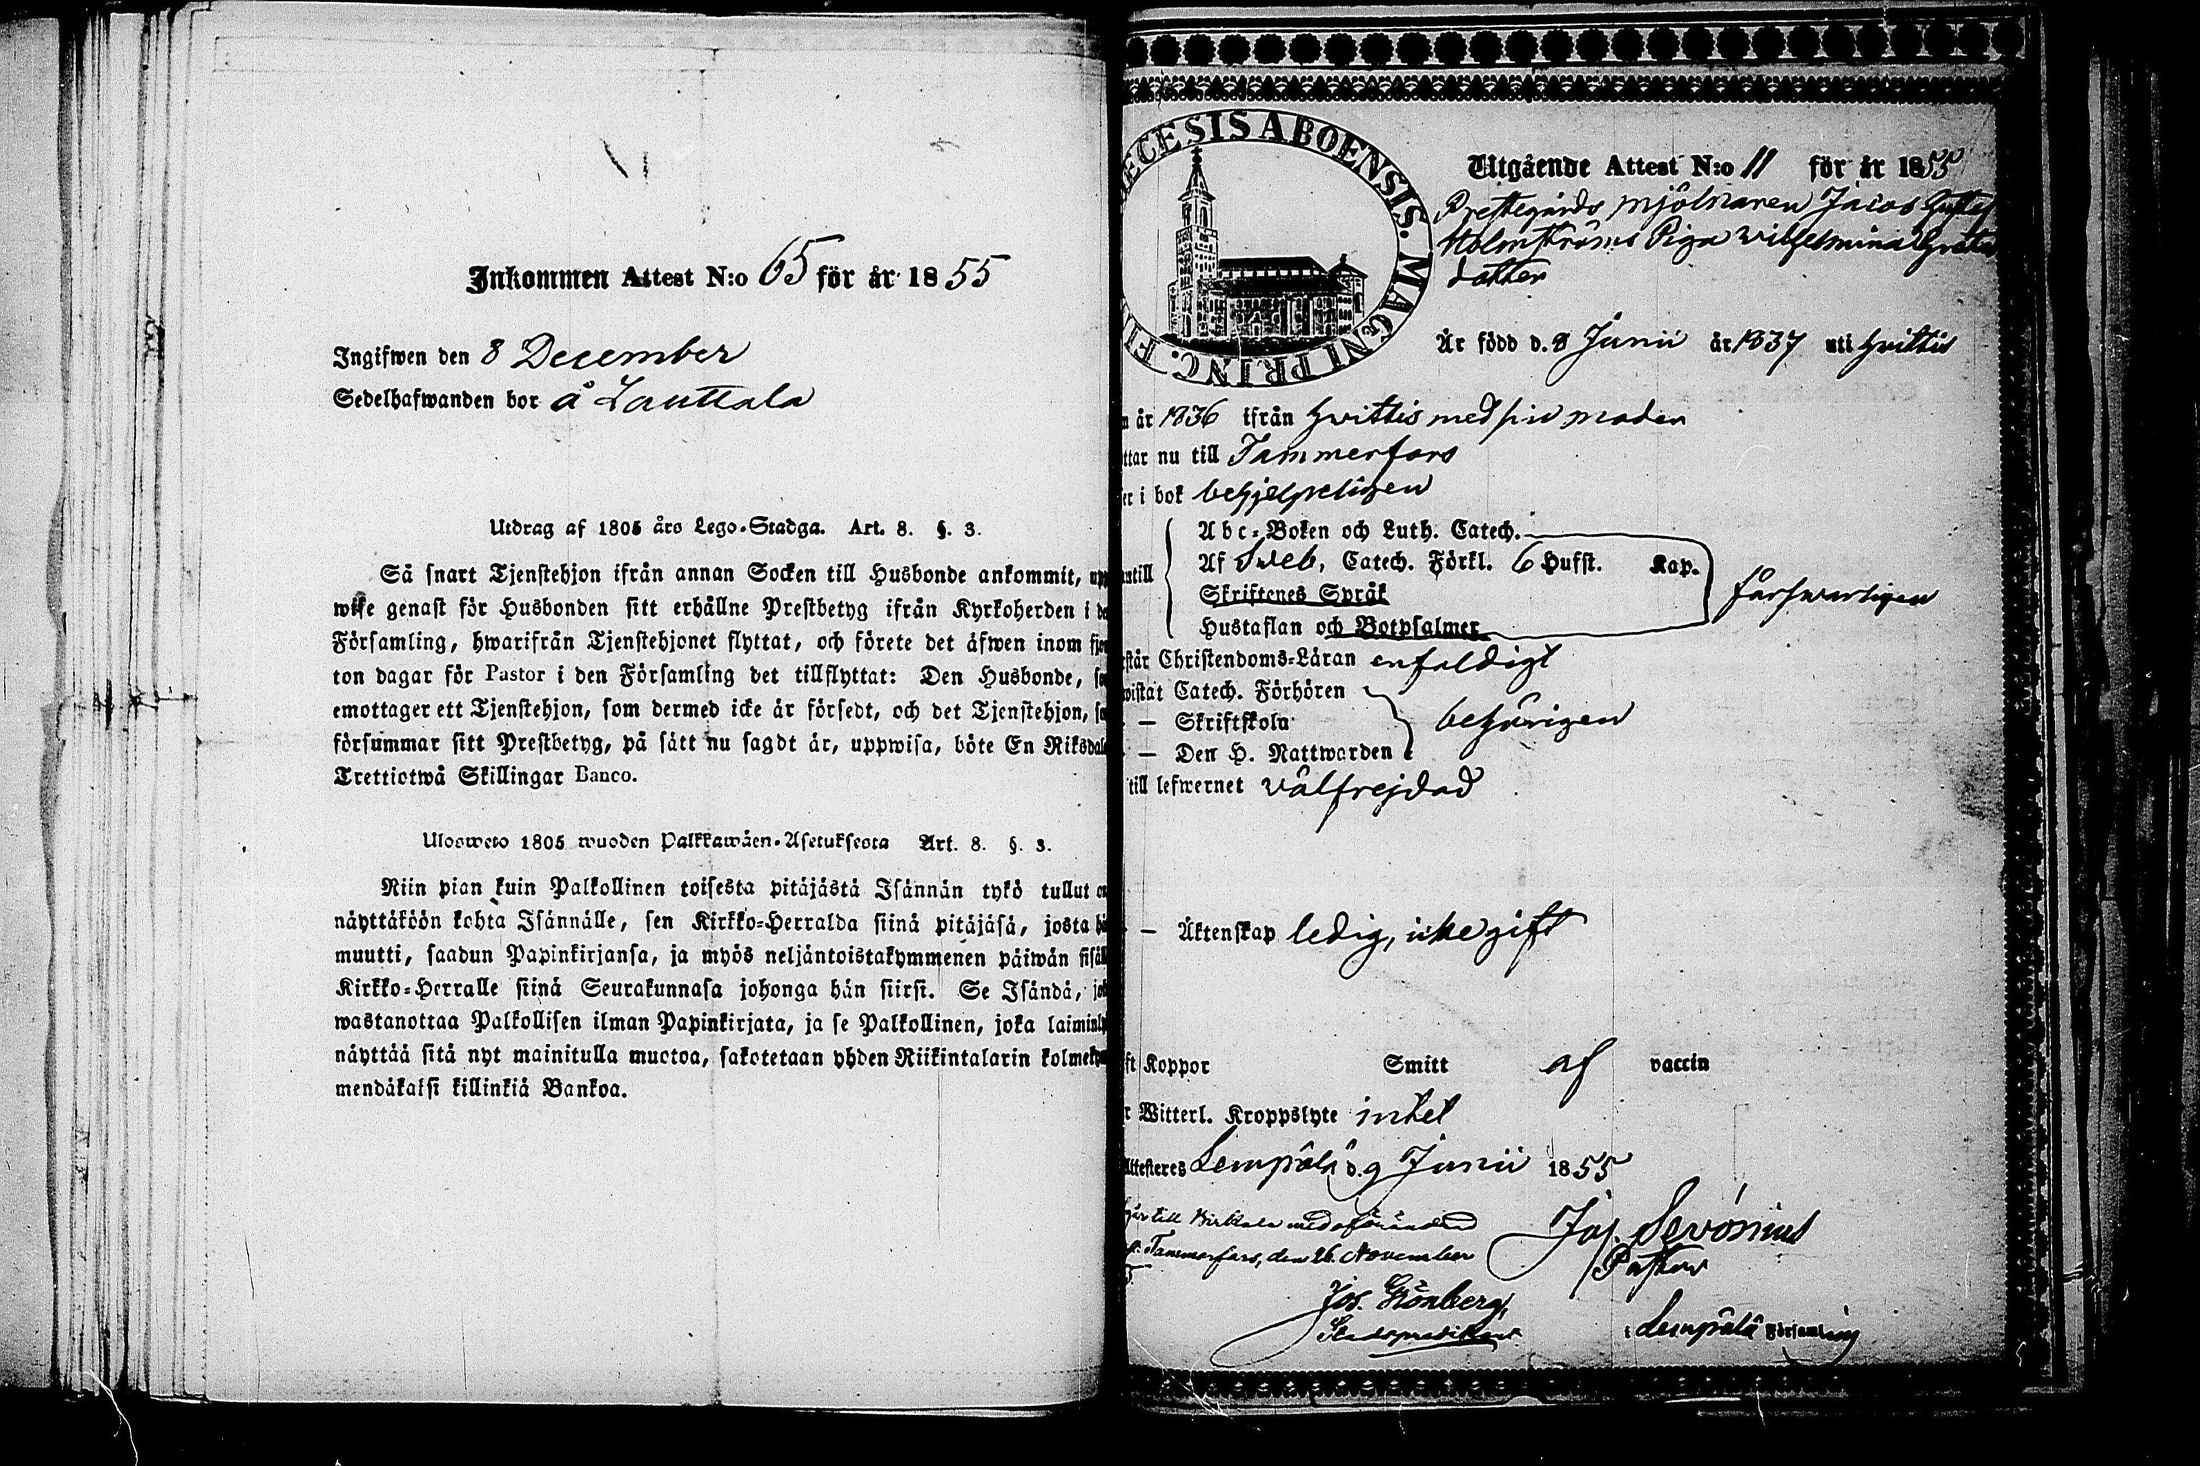 Inkommen Attest N:o 65 för år 1855
Ingifwen den 8 December
Sedelhafwanden bor å Lauttala
Utdrag af 1805 års Lego-Stadga. Art. 8. §. 3.
Så snart Tjenstehjon ifrån annan Socken till Husbonde ankommit, upp
wise genast för Husbonden sitt erhållne Prestbetyg ifrån Kyrkoherden i de
Församling, hwarifrån Tjenstehjonet flyttat, och förete det äfwen inom fjor
ton dagar för Pastor i den Församling det tillflyttat: Den Husbonde, so
emottager ett Tjenstehjon, som dermed icke är försedt, och det Tjenstehjon, so
försummar sitt Prestbetyg, på sätt nu sagdt är, uppwisa, böte En Riksdal
Trettiotwå Skillingar Banco.
Ulosweto 1805 wuoden Palkkawäen-Asetuksesta Art. 8. §. 3.
Niin pian kuin Palkollinen toisesta pitäjästä Isännän tykö tullut on
näyttäköön kohta Isännälle, sen Kirkko-Herralda siinä pitäjäsä, josta hä
muutti, saadun Papinkirjansa, ja myös neljäntoistakymmenen päiwän sisäl
Kirkko-Herralle siinä Seurakunnasa johonga hän siirsi. Se Isändä, jok
wastanottaa Palkollisen ilman Papinkirjata, ja se Palkollinen, joka laiminly
näyttää sitä nyt mainitulla muotoa, sakotetaan yhden Riikintalarin kolmeky
mendäkaksi killinkiä Bankoa.
ECESIS ABOENSIS. MAGNI PRINC. FIN
Utgående Attest N:o 11 för år 1855
Prestegårds mjölnaren Jacob Gustaf
Holmströms Piga Wilhelmina Greta
dotter
Är född d. 8 Junii år 1837 uti Hvittis
n år 1836 ifrån Hvittis med sin moder
ttar nu till Tammerfors
er i bok behjelpeligen
Abc-Boken och Luth. Catech.
Af Sveb. Catech. Förkl. 6 Hufst. Kap.
Skriftenes Språk
Hustaflan och Botpsalmer
utill
försvarligen
estår Christendoms-Läran enfaldigt
wistat Catech. Förhören
— Skriftskola
— Den H. Nattwarden
behörigen
till lefwernet välfrejdad
— Äktenskap ledig, icke gift
ft Koppor Smitt af vaccin
r Witterl. Kroppslyte intet
Attesteres Lempälä d. 9 Junii 1855
går till Birkala med oförändrad
Tammerfors, den 26. November
Jos. Grönberg,
Stadspredikant
Jos. Sevónius
Pastor
i Lempälä Församling